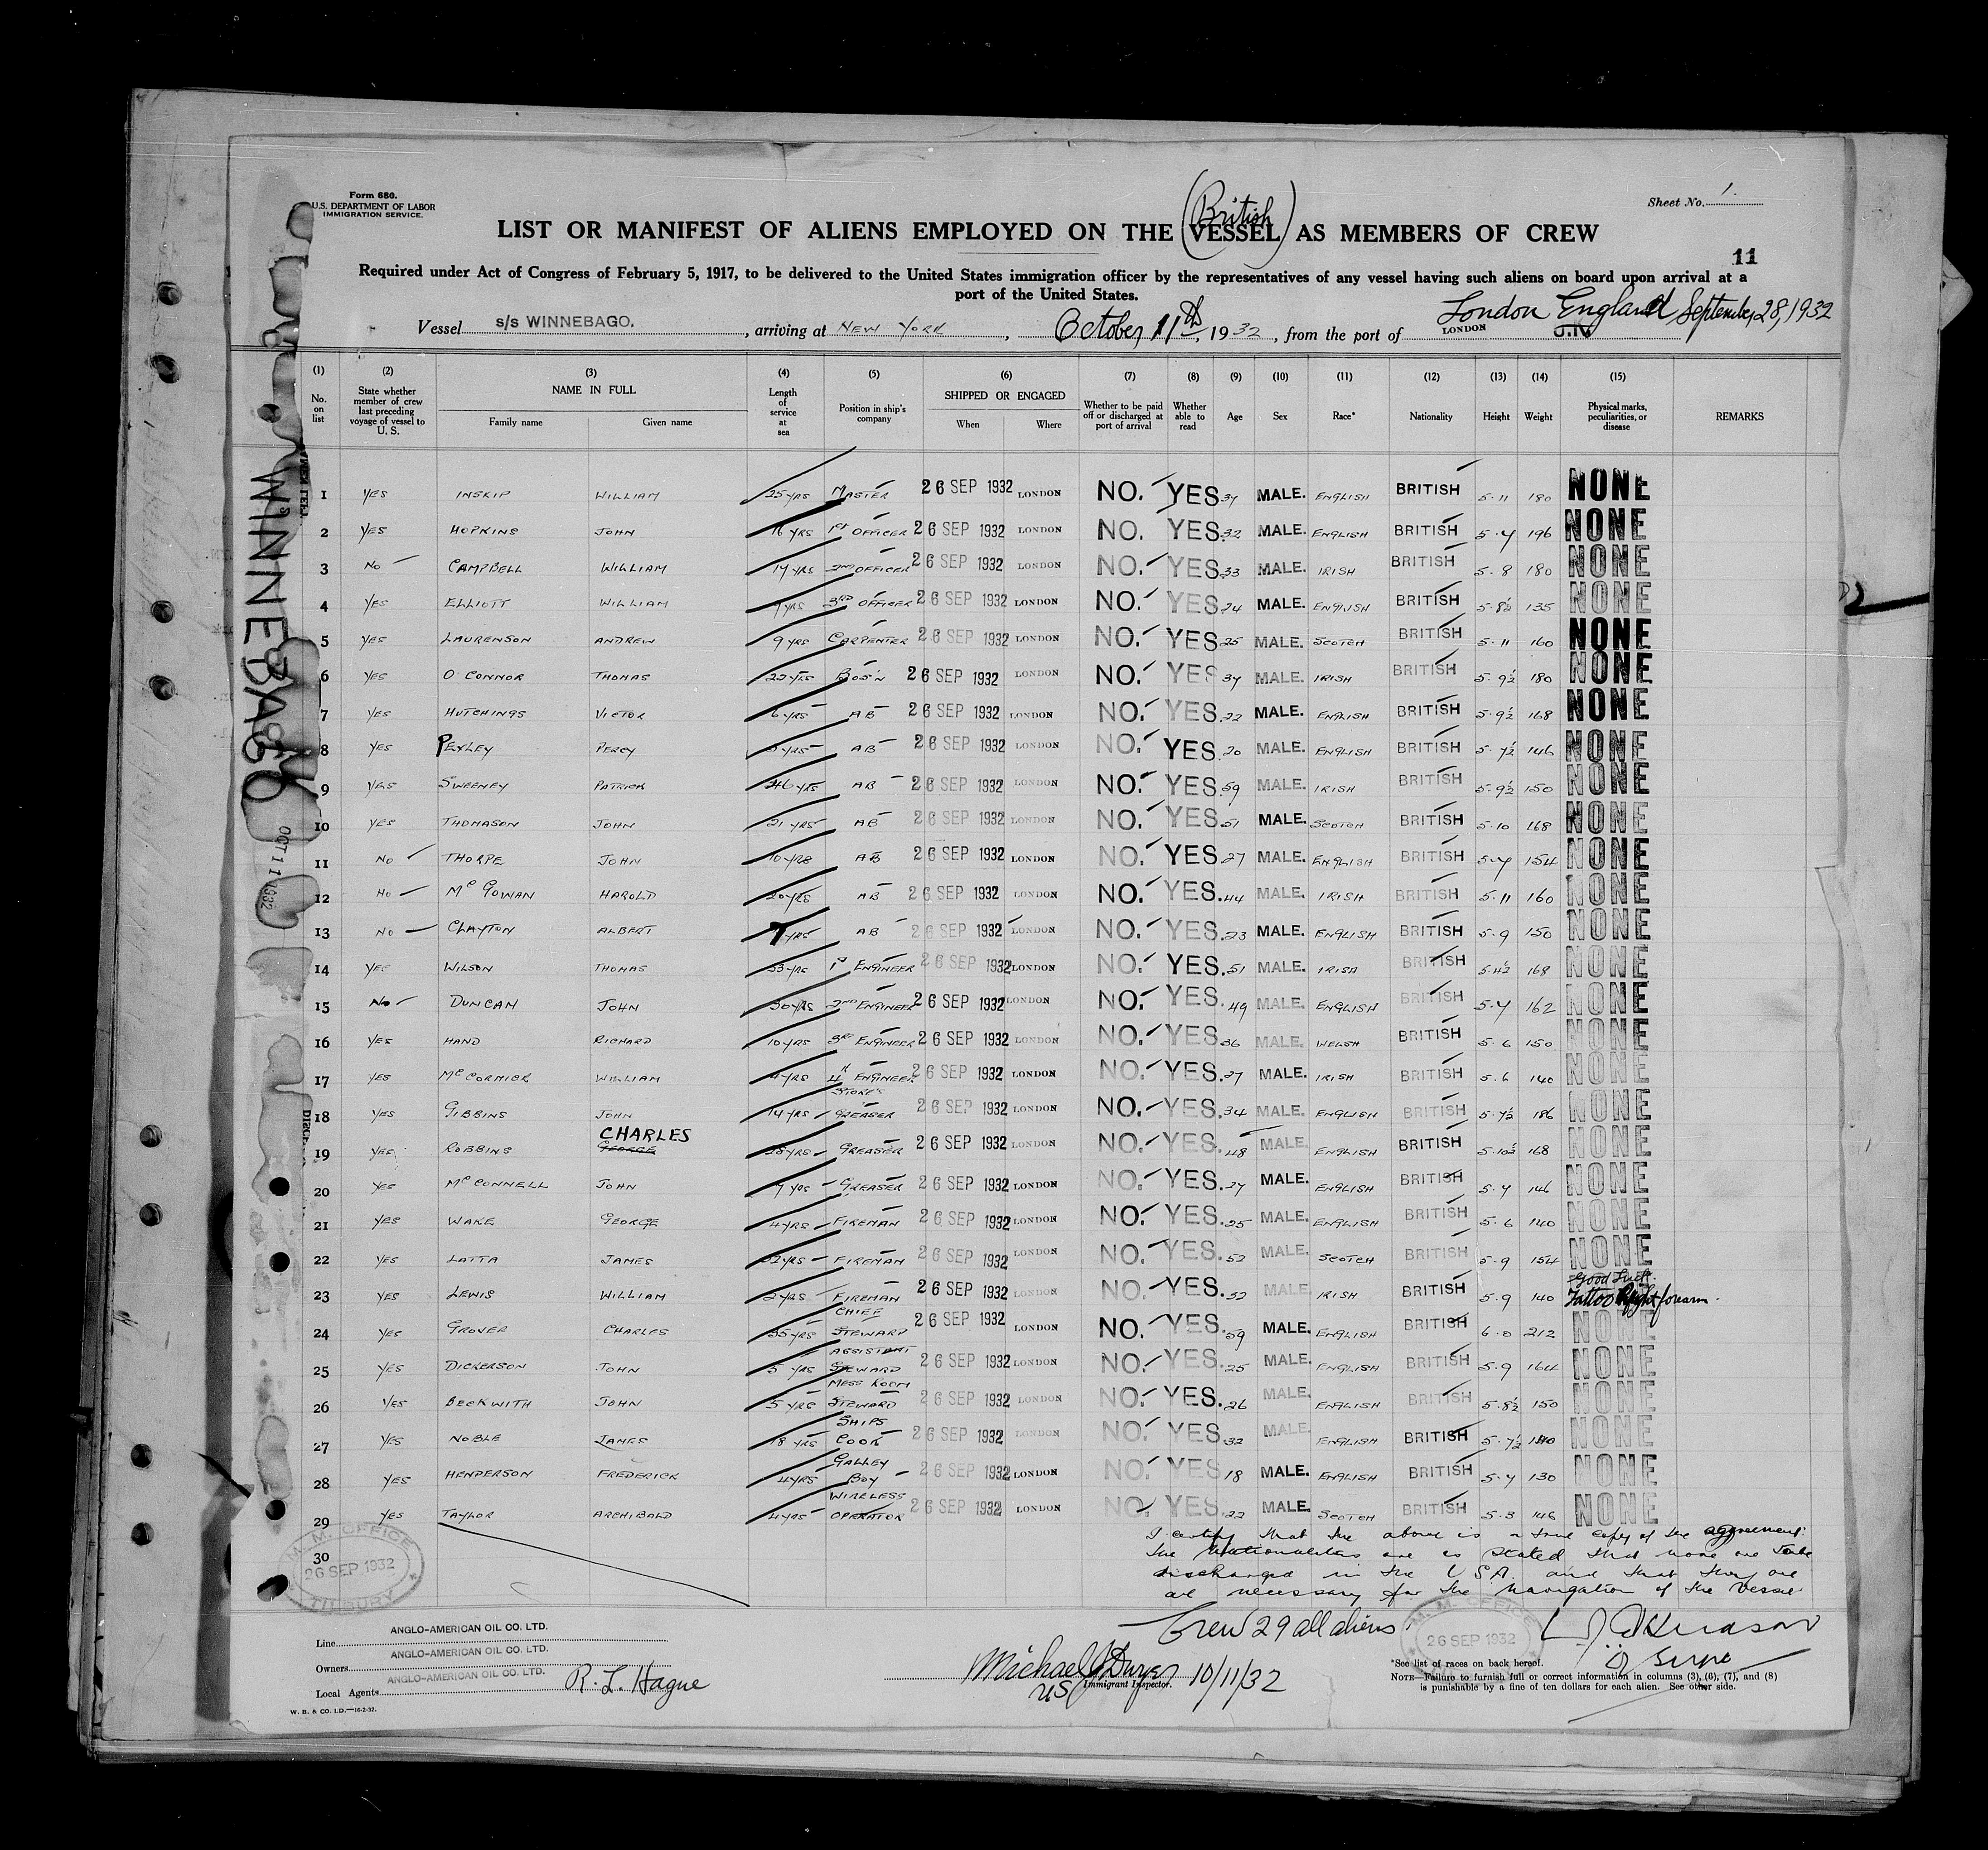 Form 680.
U.S. DEPARTMENT OF LABOR
IMMIGRATION SERVICE.
Sheet No. 1
(British)
LIST OR MANIFEST OF ALIENS EMPLOYED ON THE VESSEL AS MEMBERS OF CREW
11
Required under Act of Congress of February 5, 1917, to be delivered to the United States immigration officer by the representatives of any vessel having such aliens on board upon arrival at a
port of the United States.
Vessel s/s WINNEBAGO. , arriving at NEW YORK , October 11th, 1932, from the port of LONDON London England September 28, 1932
(1) No. on list (2) State whether member of crew last preceding voyage of vessel to U. S. (3) NAME IN FULL Family name Given name (4) Length of service at sea (5) Position in ship's company (6) SHIPPED OR ENGAGED When Where (7) Whether to be paid off or discharged at port of arrival (8) Whether able to read (9) Age (10) Sex (11) Race* (12) Nationality (13) Height (14) Weight (15) Physical marks, peculiarities, or disease REMARKS
1 YES INSKIP WILLIAM 25 YRS MASTER 26 SEP 1932 LONDON NO. YES 37 MALE. ENGLISH BRITISH 5-11 180 NONE
2 YES HOPKINS JOHN 16 YRS 1st OFFICER 26 SEP 1932 LONDON NO. YES 32 MALE. ENGLISH BRITISH 5-7 196 NONE
3 NO CAMPBELL WILLIAM 17 YRS 2nd OFFICER 26 SEP 1932 LONDON NO. YES 33 MALE. IRISH BRITISH 5-8 180 NONE
4 YES ELLIOTT WILLIAM 7 YRS 3RD OFFICER 26 SEP 1932 LONDON NO. YES 24 MALE. ENGLISH BRITISH 5-8½ 135 NONE
5 YES LAURENSON ANDREW 9 YRS CARPENTER 26 SEP 1932 LONDON NO. YES 25 MALE. SCOTCH BRITISH 5-11 160 NONE
6 YES O CONNOR THOMAS 22 YRS BOS'N 26 SEP 1932 LONDON NO. YES 37 MALE. IRISH BRITISH 5-9½ 180 NONE
7 YES HUTCHINGS VICTOR 6 YRS AB 26 SEP 1932 LONDON NO. YES 22 MALE. ENGLISH BRITISH 5-9½ 168 NONE
8 YES PEXLEY PERCY YRS AB 26 SEP 1932 LONDON NO. YES 20 MALE. ENGLISH BRITISH 5-7½ 146 NONE
9 YES SWEENEY PATRICK 46 YRS AB 26 SEP 1932 LONDON NO. YES 59 MALE. IRISH BRITISH 5-9½ 150 NONE
10 YES THOMASON JOHN 21 YRS AB 26 SEP 1932 LONDON NO. YES 51 MALE. SCOTCH BRITISH 5-10 168 NONE
11 NO THORPE JOHN 10 YRS AB 26 SEP 1932 LONDON NO. YES 27 MALE. ENGLISH BRITISH 5-7 154 NONE
12 NO Mc GOWAN HAROLD 20 YRS AB 26 SEP 1932 LONDON NO. YES. 44 MALE. IRISH BRITISH 5-11 160 NONE
13 NO CLAYTON ALBERT 7 YRS AB 26 SEP 1932 LONDON NO. YES. 23 MALE. ENGLISH BRITISH 5-9 150 NONE
14 YES WILSON THOMAS 33 YRS 1st ENGINEER 26 SEP 1932 LONDON NO. YES. 51 MALE. IRISH BRITISH 5-4½ 168 NONE
15 NO DUNCAN JOHN 30 YRS 2ND ENGINEER 26 SEP 1932 LONDON NO. YES. 49 MALE. ENGLISH BRITISH 5-7 162 NONE
16 YES HAND RICHARD 10 YRS 3RD ENGINEER 26 SEP 1932 LONDON NO. YES. 36 MALE. WELSH BRITISH 5-6 150 NONE
17 YES McCORMICK WILLIAM 4 YRS 4 ENGINEER 26 SEP 1932 LONDON NO. YES. 27 MALE. IRISH BRITISH 5-6 140 NONE
18 YES GIBBINS JOHN 14 YRS STORES GREASER 26 SEP 1932 LONDON NO. YES. 34 MALE. ENGLISH BRITISH 5-7½ 186 NONE
19 YES ROBBINS GEORGE CHARLES 28 YRS GREASER 26 SEP 1932 LONDON NO. YES. 48 MALE. ENGLISH BRITISH 5-10½ 168 NONE
20 YES Mc CONNELL JOHN 7 YRS GREASER 26 SEP 1932 LONDON NO. YES. 27 MALE. ENGLISH BRITISH 5-7 146 NONE
21 YES WAKE GEORGE 4 YRS FIREMAN 26 SEP 1932 LONDON NO. YES. 25 MALE. ENGLISH BRITISH 5-6 140 NONE
22 YES LATTA JAMES 32 YRS FIREMAN 26 SEP 1932 LONDON NO. YES. 52 MALE. SCOTCH BRITISH 5-9 154 NONE
23 YES LEWIS WILLIAM 2 YRS FIREMAN 26 SEP 1932 LONDON NO. YES. 32 MALE. IRISH BRITISH 5-9 140 Good Luck. Tattoo Right forearm.
24 YES GROVER CHARLES 35 YRS CHIEF STEWARD 26 SEP 1932 LONDON NO. YES. 59 MALE. ENGLISH BRITISH 6-0 212 NONE
25 YES DICKERSON JOHN 5 YRS ASSISTANT STEWARD 26 SEP 1932 LONDON NO. YES. 25 MALE. ENGLISH BRITISH 5-9 164 NONE
26 YES BECKWITH JOHN 5 YRS MESS ROOM STEWARD 26 SEP 1932 LONDON NO. YES. 26 MALE. ENGLISH BRITISH 5-8½ 150 NONE
27 YES NOBLE JAMES 18 YRS SHIPS COOK 26 SEP 1932 LONDON NO. YES. 32 MALE. ENGLISH BRITISH 5-7½ 140 NONE
28 YES HENDERSON FREDERICK 4 YRS GALLEY BOY 26 SEP 1932 LONDON NO. YES 18 MALE. ENGLISH BRITISH 5-7 130 NONE
29 YES TAYLOR ARCHIBALD 4 YRS WIRELESS OPERATOR 26 SEP 1932 LONDON NO. YES. 22 MALE. SCOTCH BRITISH 5-3 146 NONE
30
I certify that the above is a true copy of the agreement:
the Nationalities are as stated that none are to be
discharged in the U S A. and that they are
all necessary for the navigation of the vessel
WINNEBAGO
OCT 11 1932
M. M. OFFICE
26 SEP 1932
TILBURY
Crew 29 all aliens
M. M. OFFICE
26 SEP 1932
Line ANGLO-AMERICAN OIL CO. LTD.
Owners ANGLO-AMERICAN OIL CO. LTD.
Local Agents ANGLO-AMERICAN OIL CO. LTD. R. L. Hague
Michael J Dwyer 10/11/32
US Immigrant Inspector.
*See list of races on back hereof.
NOTE—Failure to furnish full or correct information in columns (3), (6), (7), and (8)
is punishable by a fine of ten dollars for each alien. See other side.
W. B. & CO. LD.—16-2-32.